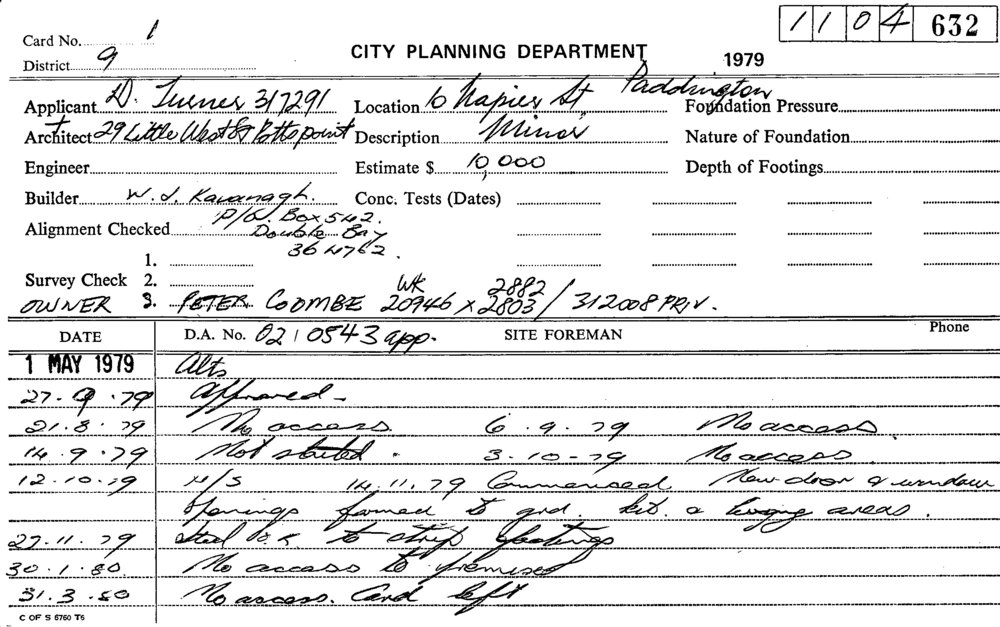 1 1 0 4 632
Card No. 1
CITY PLANNING DEPARTMENT 1979
District 9
Applicant D. Turner 317291 Location 10 Napier St Paddington Foundation Pressure
+
Architect 29 Little West St Potts point Description Minor Nature of Foundation
Engineer Estimate $ 10,000 Depth of Footings
Builder W. J. Kavanagh. Conc. Tests (Dates)
P/O. Box 542.
Alignment Checked Double Bay
364762.
1.
Survey Check 2. WK 2882
OWNER 3. PETER COOMBE 20946 x 2803 / 312008 PRIV.
DATE D.A. No. 0210543 app. SITE FOREMAN Phone
1 MAY 1979 Alts
27. 9 .79 Approved -
21.8.79 No access 6.9.79 No access.
14.9.79 Not started. 3-10-79 No access.
12.10.79 N/S 14.11.79 Commenced New door & window
openings formed to grd. kit. & living areas.
27.11.79 Steel O.K. to strip footings
30.1.80. No access to premises
31.3.80 No access. Card left
C OF S 6760 T6